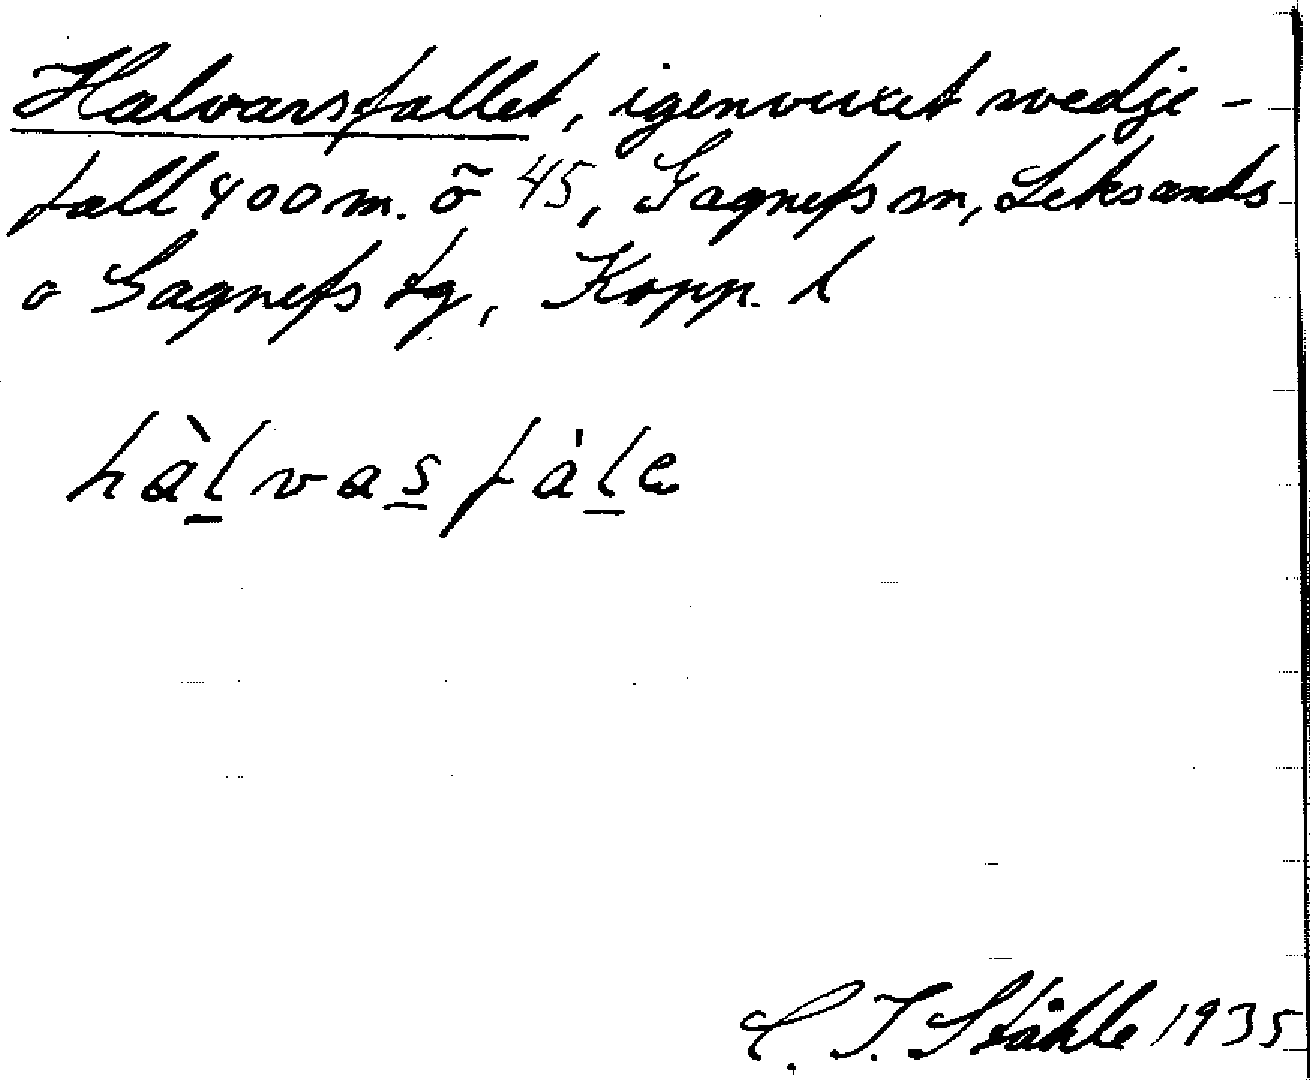 Halvarsfallet, igenvuxet svedje-
fall 400 m. õ 45, Gagnefs sn, Leksands
o Gagnefs tg, Kopp. l
hàlvasfàle
C. I. Ståhle 1935